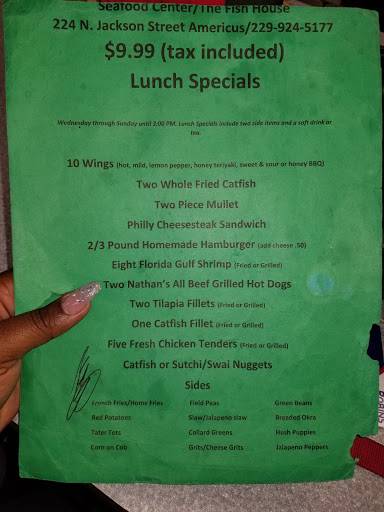 Seafood Center/The Fish House
224 N. Jackson Street Americus/229-924-5177
$9.99 (tax included)
Lunch Specials
Wednesday through Sunday until 2:00 PM. Lunch Specials include two side items and a soft drink or
tea.
10 Wings (hot, mild, lemon pepper, honey teriyaki, sweet & sour or honey BBQ)
Two Whole Fried Catfish
Two Piece Mullet
Philly Cheesesteak Sandwich
2/3 Pound Homemade Hamburger (add cheese .50)
Eight Florida Gulf Shrimp (Fried or Grilled)
Two Nathan's All Beef Grilled Hot Dogs
Two Tilapia Fillets (Fried or Grilled)
One Catfish Fillet (Fried or Grilled)
Five Fresh Chicken Tenders (Fried or Grilled)
Catfish or Sutchi/Swai Nuggets
Sides
French Fries/Home Fries Field Peas Green Beans
Red Potatoes Slaw/Jalapeno slaw Breaded Okra
Tater Tots Collard Greens Hush Puppies
Corn on Cob Grits/Cheese Grits Jalapeno Peppers